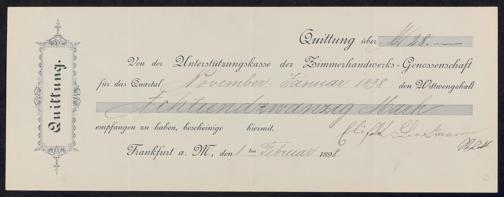 Quittung.
Quittung über M 28.—
Von der Unterstützungskasse der Zimmerhandwerks-Genossenschaft
für das Quartal November Januar 1898 den Wittwengehalt
Achtundzwanzig Mark
empfangen zu haben, bescheinige hiermit.
Frankfurt a. M., den 1 ten Februar 1898.